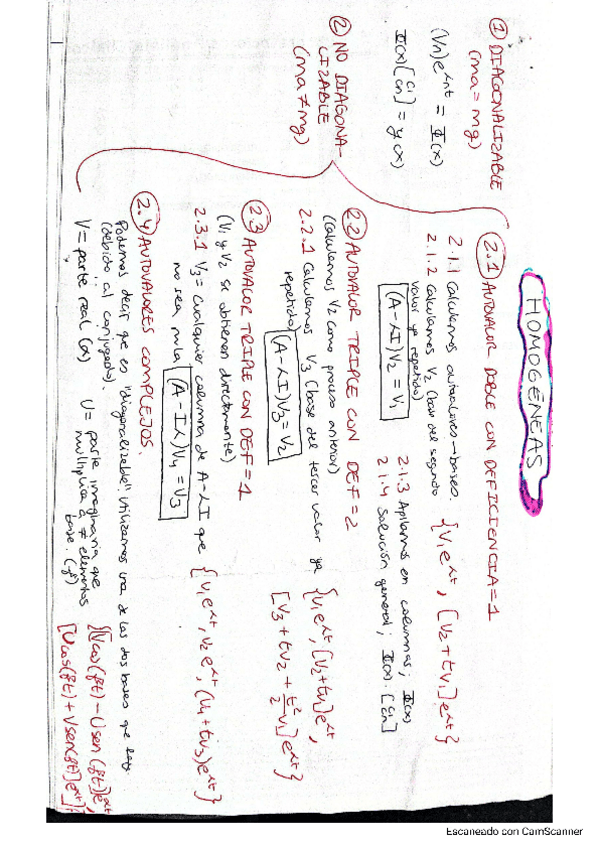 HOMOGÉNEAS
① DIAGONALIZABLE
(ma = mg)
(Vn)e^λnt = Φ(x)
Φ(x)[C1 Cn] = y(x)
② NO DIAGONA-
LIZABLE
(ma ≠ mg)
2.1 AUTOVALOR DOBLE CON DEFICIENCIA=1
2.1.1 Calculamos autovalores → bases.
2.1.2 Calculamos V2 (base del segundo
valor ya repetido)
(A-λI)V2 = V1
{V1e^λt, [V2+tV1]e^λt}
2.1.3 Apilamos en columnas; Φ(x)
2.1.4 Solución general; Φ(x) [C1 Cn]
2.2 AUTOVALOR TRIPLE CON DEF=2
(Calculamos V2 como proceso anterior)
2.2.1 Calculamos V3 (base del tercer valor ya
repetido)
(A-λI)V3 = V2
{V1e^λt, [V2+tV1]e^λt,
[V3 + tV2 + t²/2 V1]e^λt}
2.3 AUTOVALOR TRIPLE CON DEF=1
(V1 y V2 se obtienen directamente)
2.3.1 V3 = cualquier columna de A-λI que
no sea nula
(A-Iλ)V4 = V3
{V1e^λt, V2e^λt, (V4+tV3)e^λt}
2.4 AUTOVALORES COMPLEJOS
Podemos decir que es "diagonalizable". Utilizamos una de las dos bases que hay
(debido al conjugado).
V = parte real (α)
U = parte imaginaria que
multiplica a ≠ elementos
base. (β)
{[V cos(βt) - U sen(βt)]e^αt,
[U cos(βt) + V sen(βt)]e^αt}
Escaneado con CamScanner